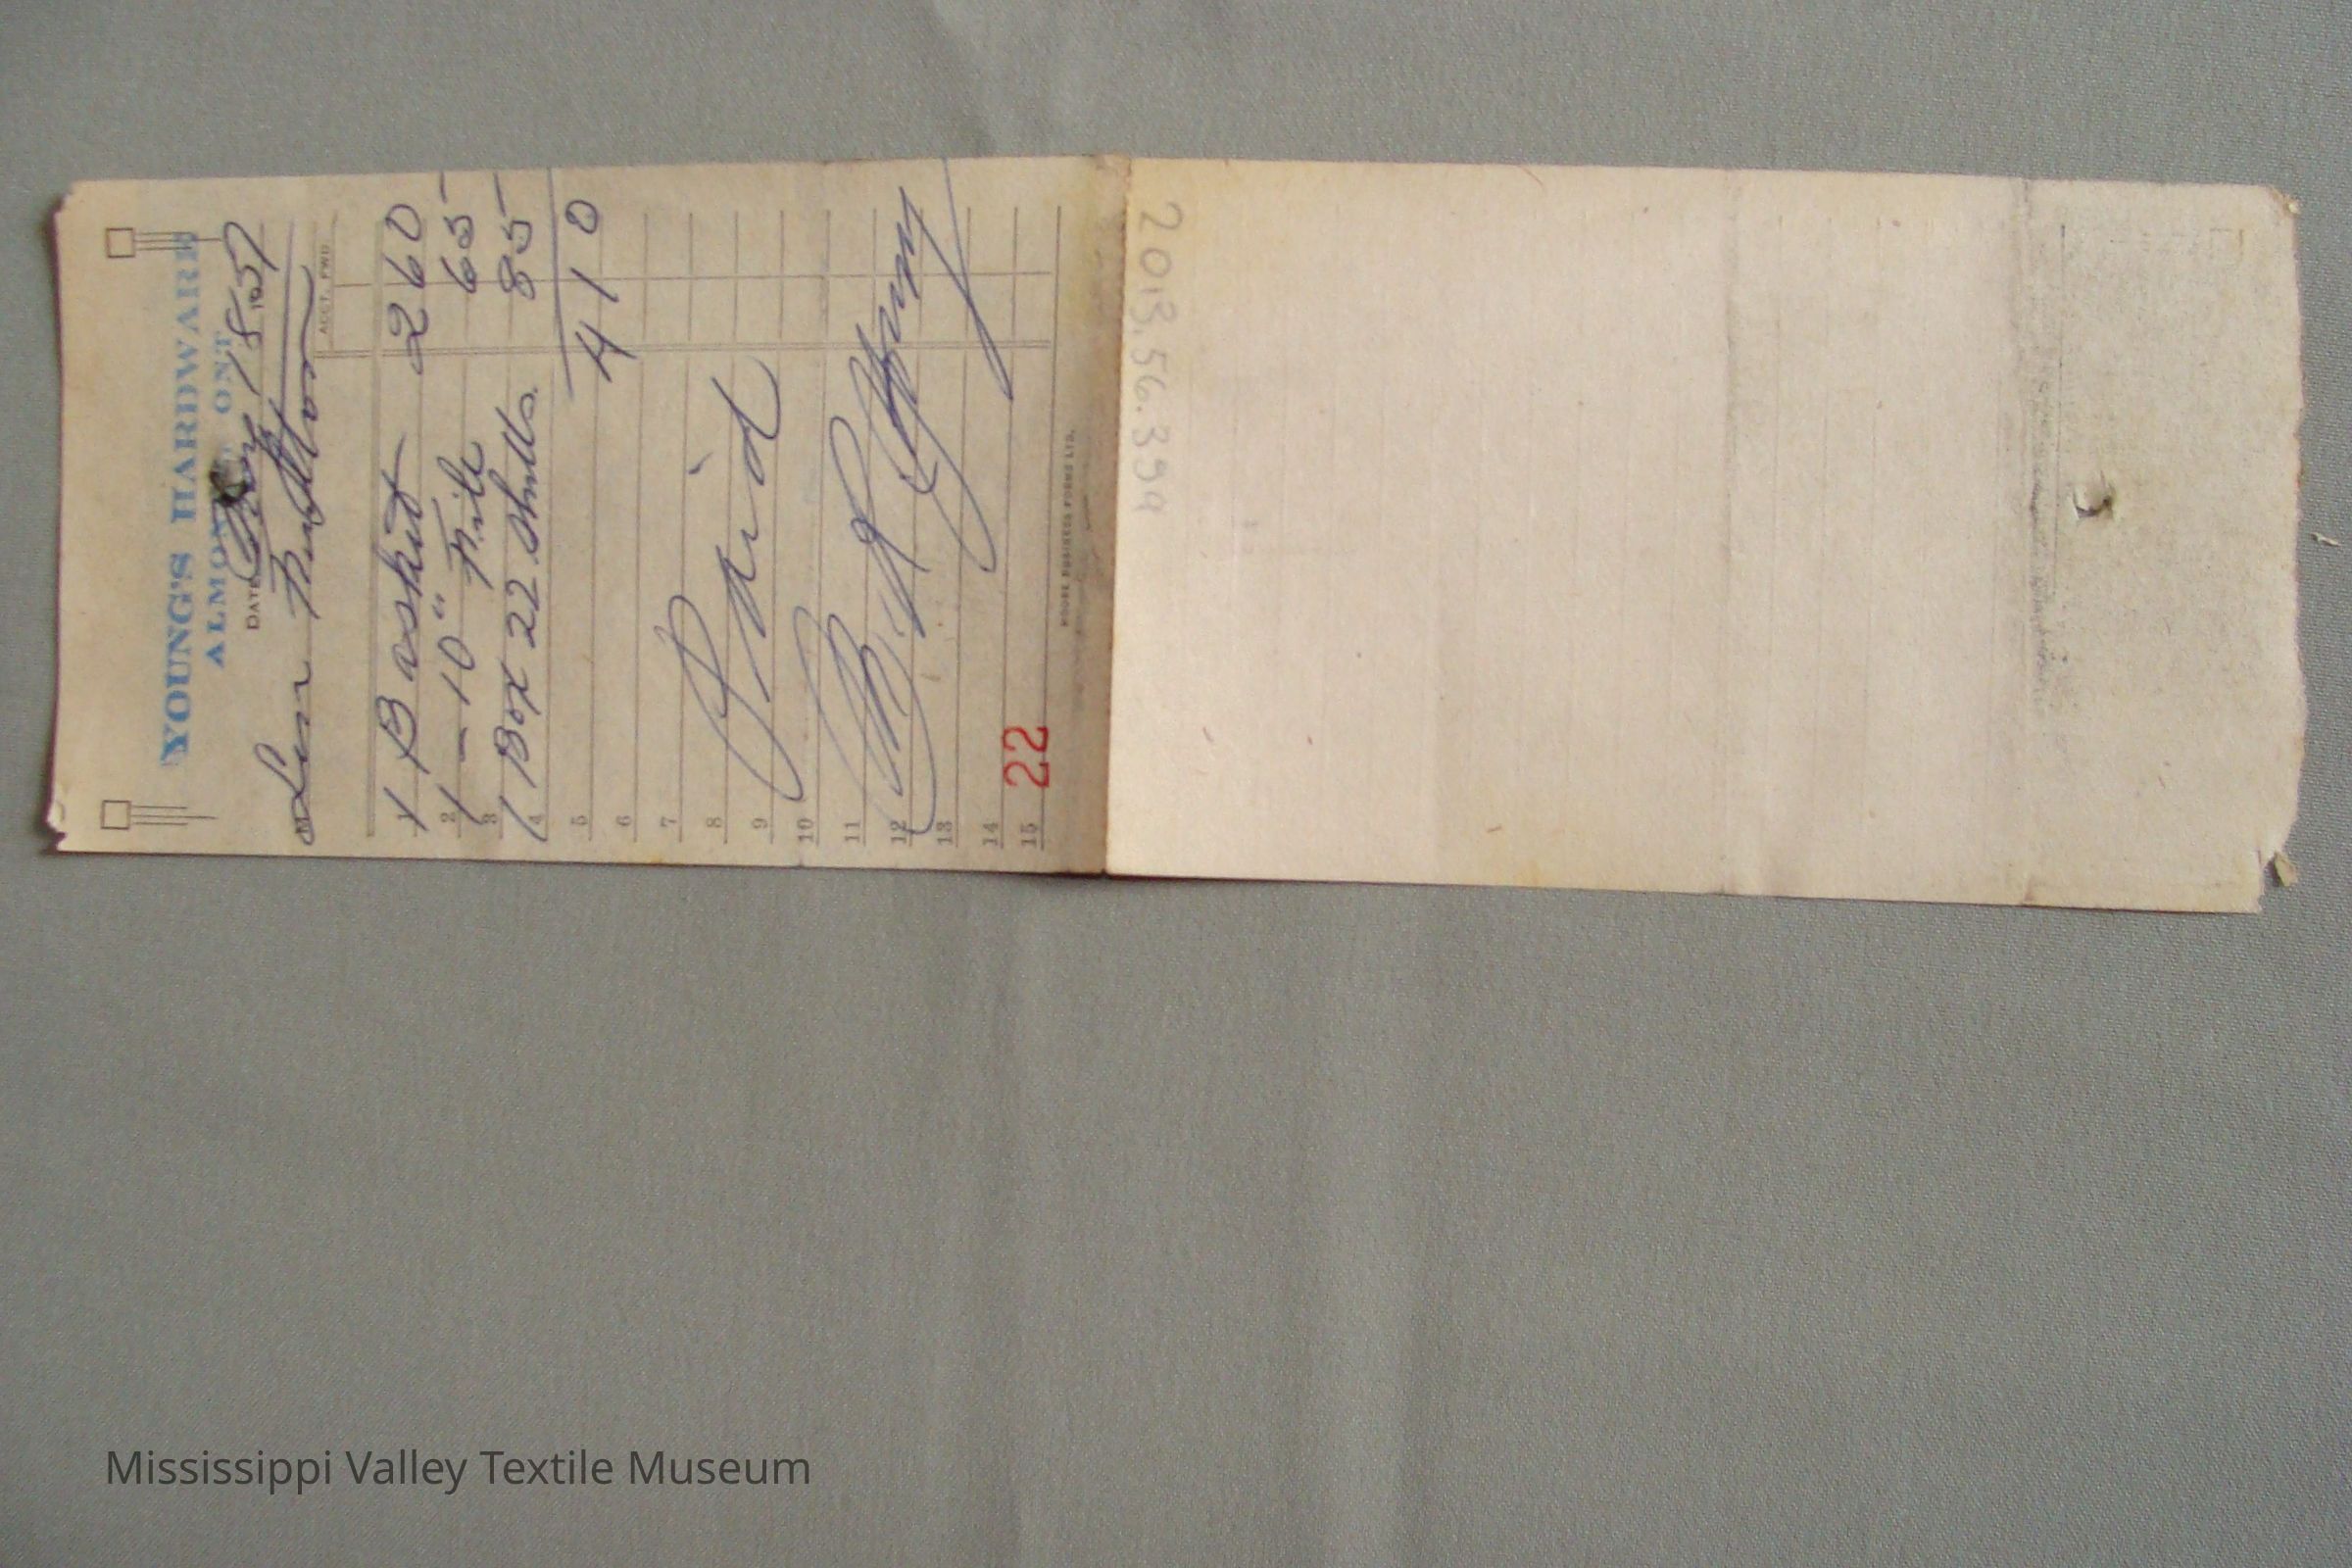 YOUNG'S HARDWARE
ALMONTE ONT
DATE 18 1957
M Len
ACCT. FWD.
1 Basket 2 60
2 1 - 10" File 65
3 1 Box 22 Shells 85
4
5 4 10
6
7
8
9 Paid
10
11
12
13
14
15 22
MOORE BUSINESS FORMS LTD.
2013.56.399
Mississippi Valley Textile Museum